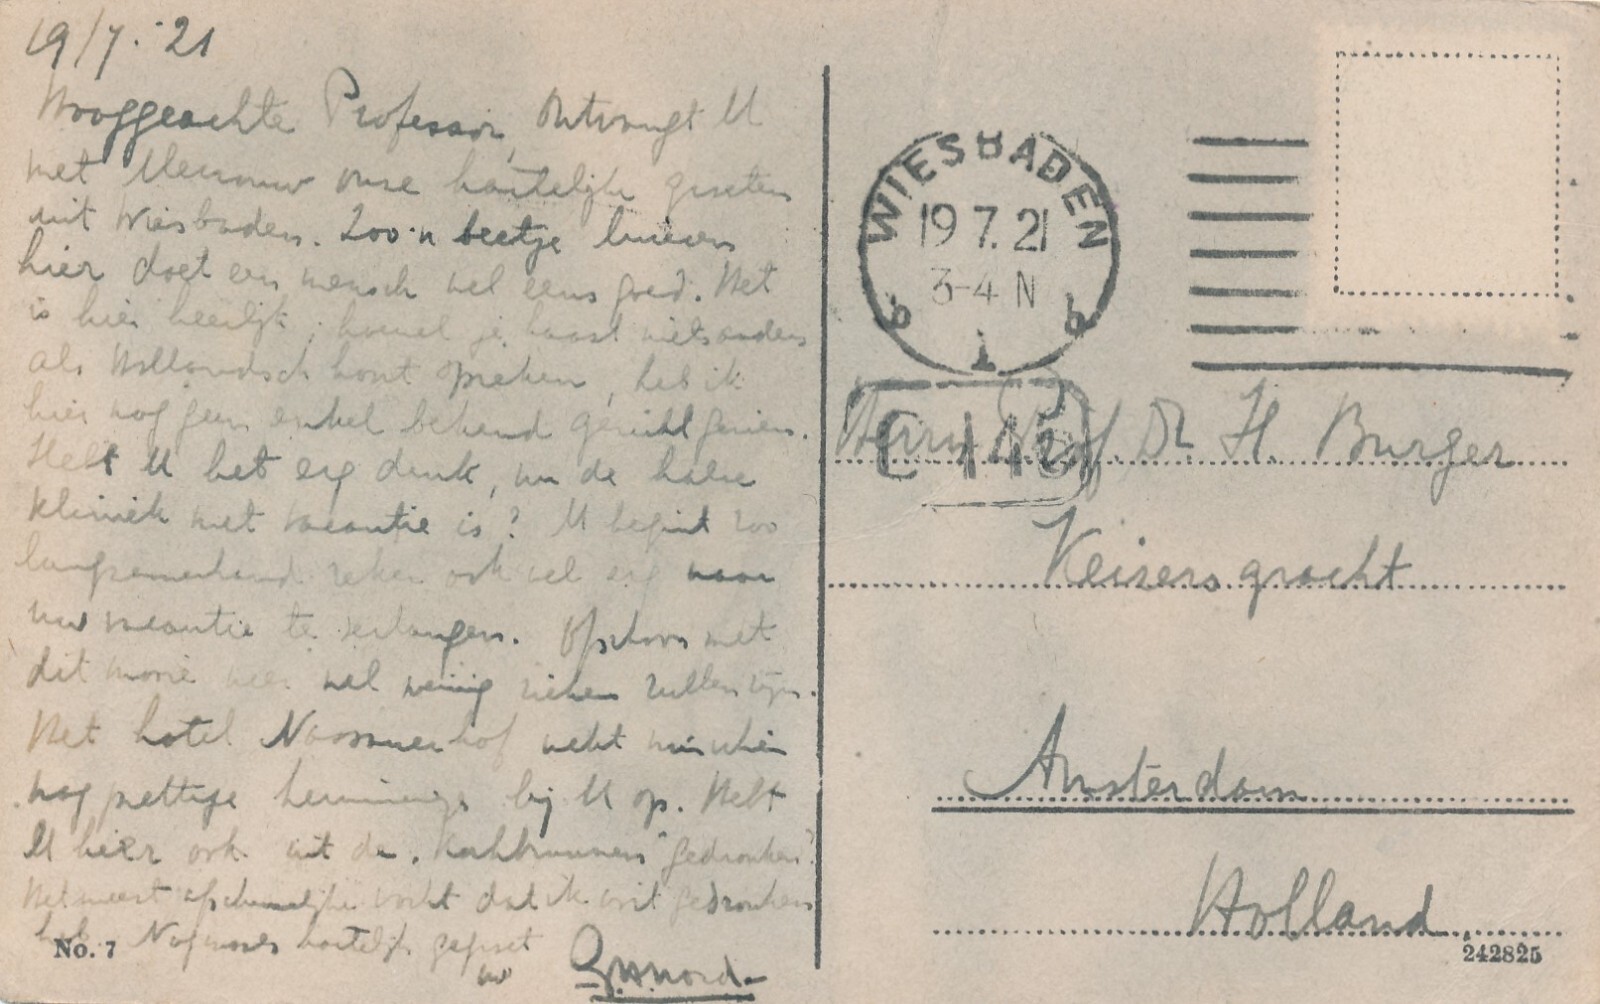 19/7.'21
Hooggeachte Professor, Ontvangt U
met Mevrouw onze hartelijke groeten
uit Wiesbaden. Zoo'n beetje luieren
hier doet een mensch wel eens goed. Het
is hier heerlijk; hoewel je haast niets anders
als Hollandsch hoort spreken, heb ik
hier nog geen enkel bekend gezicht gezien.
Hebt U het erg druk, nu de halve
kliniek met vacantie is? U begint zoo
langzamerhand zeker ook wel erg naar
uw vacantie te verlangen. Ofschoon met
dit mooie weer wel weinig zieken zullen zijn.
Het hotel Nassauerhof wekt misschien
nog prettige herinneringen bij U op. Hebt
U hier ook uit de "Kochbrunnen" gedronken?
Het meest afschuwelijke vocht dat ik ooit gedronken
heb. Nogmaals hartelijk gegroet
uw
No. 7
WIESBADEN
19 7. 21
3-4 N
b 1 b
C 145
Herrn Prof. Dr. H. Burger
Keizersgracht
Amsterdam
Holland
242825